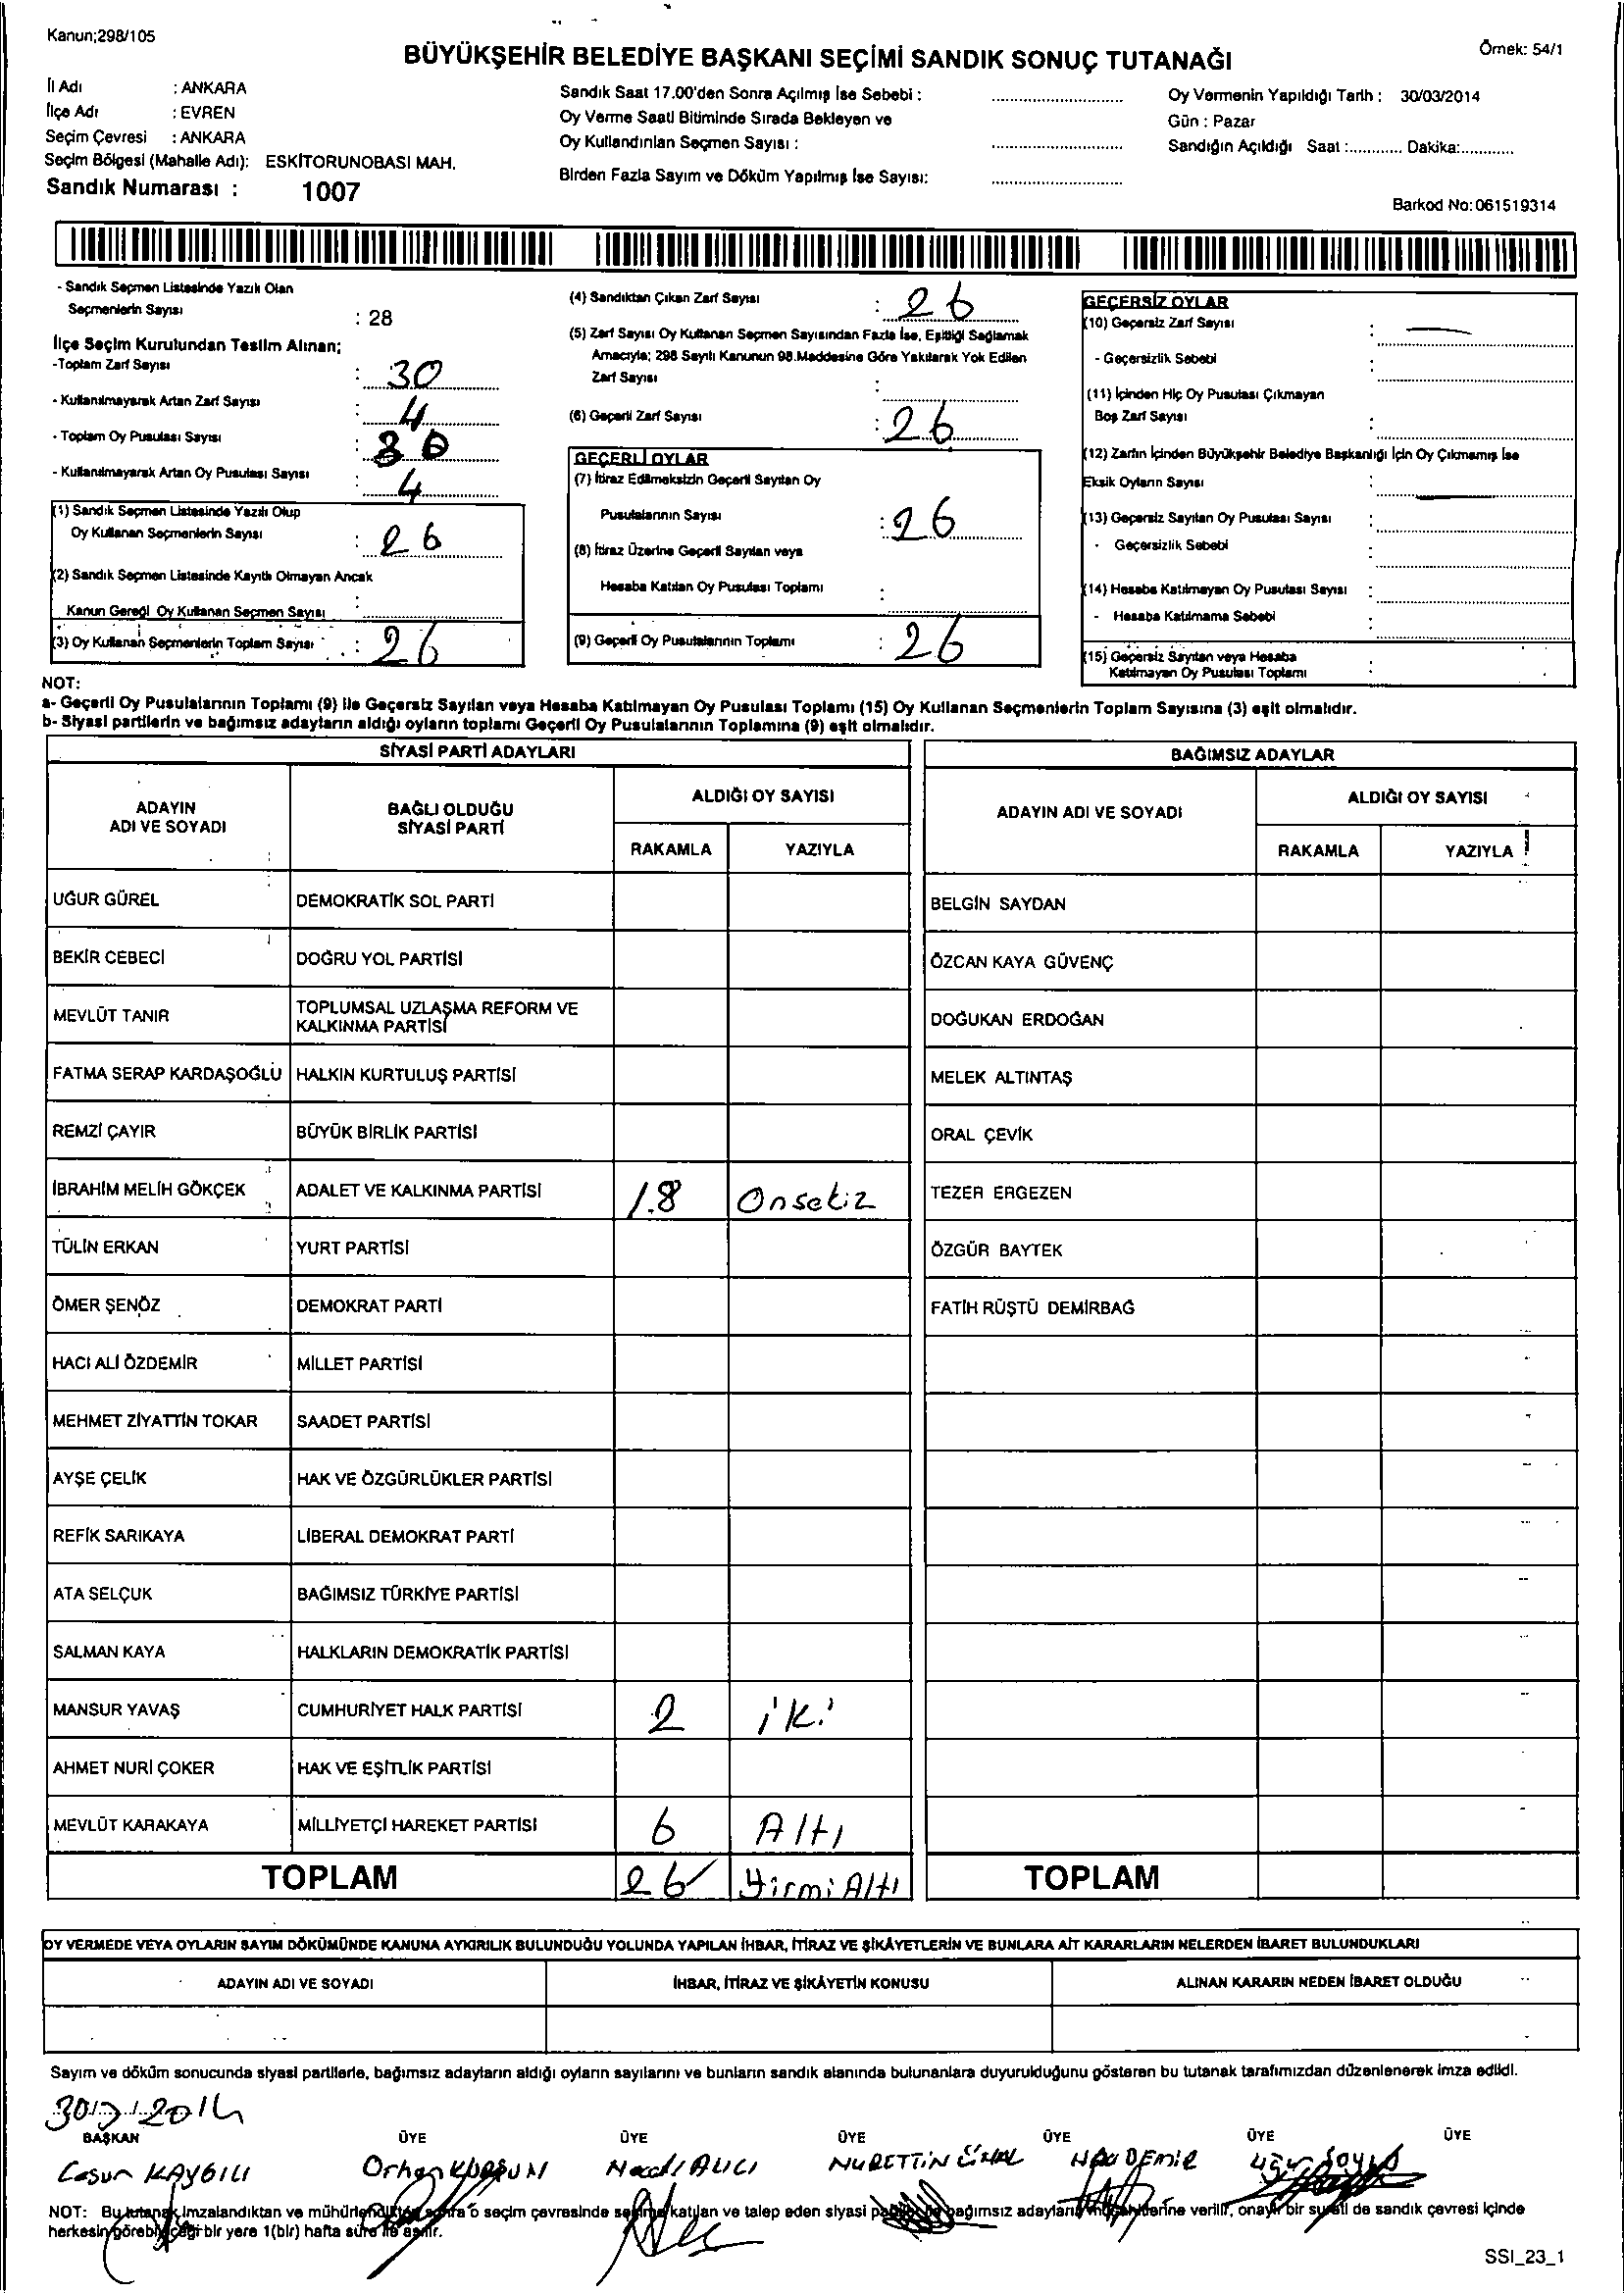 Kanun;298/105
BÜYÜKŞEHİR BELEDİYE BAŞKANI SEÇİMİ SANDIK SONUÇ TUTANAĞI
Örnek: 54/1
İl Adı : ANKARA
İlçe Adı : EVREN
Seçim Çevresi : ANKARA
Seçim Bölgesi (Mahalle Adı): ESKİTORUNOBASI MAH.
Sandık Numarası : 1007
Sandık Saat 17.00'den Sonra Açılmış İse Sebebi :
Oy Verme Saati Bitiminde Sırada Bekleyen ve
Oy Kullandırılan Seçmen Sayısı :
Birden Fazla Sayım ve Döküm Yapılmış İse Sayısı:
Oy Vermenin Yapıldığı Tarih : 30/03/2014
Gün : Pazar
Sandığın Açıldığı Saat :............ Dakika:............
Barkod No:061519314
- Sandık Seçmen Listesinde Yazılı Olan
Seçmenlerin Sayısı : 28
İlçe Seçim Kurulundan Teslim Alınan;
-Toplam Zarf Sayısı : 30
- Kullanılmayarak Artan Zarf Sayısı : 4
- Toplam Oy Pusulası Sayısı : 30
- Kullanılmayarak Artan Oy Pusulası Sayısı : 4
(1) Sandık Seçmen Listesinde Yazılı Olup
Oy Kullanan Seçmenlerin Sayısı : 26
(2) Sandık Seçmen Listesinde Kayıtlı Olmayan Ancak
Kanun Gereği Oy Kullanan Seçmen Sayısı :
(3) Oy Kullanan Seçmenlerin Toplam Sayısı : 26
(4) Sandıktan Çıkan Zarf Sayısı : 26
(5) Zarf Sayısı Oy Kullanan Seçmen Sayısından Fazla İse, Eşitliği Sağlamak
Amacıyla; 298 Sayılı Kanunun 98.Maddesine Göre Yakılarak Yok Edilen
Zarf Sayısı :
(6) Geçerli Zarf Sayısı : 26
GEÇERLİ OYLAR
(7) İtiraz Edilmeksizin Geçerli Sayılan Oy
Pusulalarının Sayısı : 26
(8) İtiraz Üzerine Geçerli Sayılan veya
Hesaba Katılan Oy Pusulası Toplamı :
(9) Geçerli Oy Pusulalarının Toplamı : 26
GEÇERSİZ OYLAR
(10) Geçersiz Zarf Sayısı :
- Geçersizlik Sebebi :
(11) İçinden Hiç Oy Pusulası Çıkmayan
Boş Zarf Sayısı :
(12) Zarfın İçinden Büyükşehir Belediye Başkanlığı İçin Oy Çıkmamış İse
Eksik Oyların Sayısı :
(13) Geçersiz Sayılan Oy Pusulası Sayısı :
- Geçersizlik Sebebi :
(14) Hesaba Katılmayan Oy Pusulası Sayısı :
- Hesaba Katılmama Sebebi :
(15) Geçersiz Sayılan veya Hesaba
Katılmayan Oy Pusulası Toplamı :
NOT:
a- Geçerli Oy Pusulalarının Toplamı (9) ile Geçersiz Sayılan veya Hesaba Katılmayan Oy Pusulası Toplamı (15) Oy Kullanan Seçmenlerin Toplam Sayısına (3) eşit olmalıdır.
b- Siyasi partilerin ve bağımsız adayların aldığı oyların toplamı Geçerli Oy Pusulalarının Toplamına (9) eşit olmalıdır.
SİYASİ PARTİ ADAYLARI
ADAYIN
ADI VE SOYADI
BAĞLI OLDUĞU
SİYASİ PARTİ
ALDIĞI OY SAYISI
RAKAMLA YAZIYLA
UĞUR GÜREL DEMOKRATİK SOL PARTİ
BEKİR CEBECİ DOĞRU YOL PARTİSİ
MEVLÜT TANIR TOPLUMSAL UZLAŞMA REFORM VE
KALKINMA PARTİSİ
FATMA SERAP KARDAŞOĞLU HALKIN KURTULUŞ PARTİSİ
REMZİ ÇAYIR BÜYÜK BİRLİK PARTİSİ
İBRAHİM MELİH GÖKÇEK ADALET VE KALKINMA PARTİSİ 18 Onsekiz
TÜLİN ERKAN YURT PARTİSİ
ÖMER ŞENÖZ DEMOKRAT PARTİ
HACI ALİ ÖZDEMİR MİLLET PARTİSİ
MEHMET ZİYATTİN TOKAR SAADET PARTİSİ
AYŞE ÇELİK HAK VE ÖZGÜRLÜKLER PARTİSİ
REFİK SARIKAYA LİBERAL DEMOKRAT PARTİ
ATA SELÇUK BAĞIMSIZ TÜRKİYE PARTİSİ
SALMAN KAYA HALKLARIN DEMOKRATİK PARTİSİ
MANSUR YAVAŞ CUMHURİYET HALK PARTİSİ 2 iki
AHMET NURİ ÇOKER HAK VE EŞİTLİK PARTİSİ
MEVLÜT KARAKAYA MİLLİYETÇİ HAREKET PARTİSİ 6 Altı
TOPLAM 26 Yirmi Altı
BAĞIMSIZ ADAYLAR
ADAYIN ADI VE SOYADI
ALDIĞI OY SAYISI
RAKAMLA YAZIYLA
BELGİN SAYDAN
ÖZCAN KAYA GÜVENÇ
DOĞUKAN ERDOĞAN
MELEK ALTINTAŞ
ORAL ÇEVİK
TEZER ERGEZEN
ÖZGÜR BAYTEK
FATİH RÜŞTÜ DEMİRBAĞ
TOPLAM
OY VERMEDE VEYA OYLARIN SAYIM DÖKÜMÜNDE KANUNA AYKIRILIK BULUNDUĞU YOLUNDA YAPILAN İHBAR, İTİRAZ VE ŞİKÂYETLERİN VE BUNLARA AİT KARARLARIN NELERDEN İBARET BULUNDUKLARI
ADAYIN ADI VE SOYADI İHBAR, İTİRAZ VE ŞİKÂYETİN KONUSU ALINAN KARARIN NEDEN İBARET OLDUĞU
Sayım ve döküm sonucunda siyasi partilerle, bağımsız adayların aldığı oyların sayılarını ve bunların sandık alanında bulunanlara duyurulduğunu gösteren bu tutanak tarafımızdan düzenlenerek imza edildi.
30/3/2014
BAŞKAN ÜYE ÜYE ÜYE ÜYE ÜYE ÜYE
Cesur KAYGILI Orhan KURŞUN Necdi ALICI NURETTİN DEMİR Uğur
NOT: Bu tutanak imzalandıktan ve mühürlendikten sonra o seçim çevresinde seçime katılan ve talep eden siyasi partiler ile bağımsız adayların müşahitlerine verilir, onaylı bir sureti de sandık çevresi içinde
herkesin görebileceği bir yere 1(bir) hafta süre ile asılır.
SSI_23_1